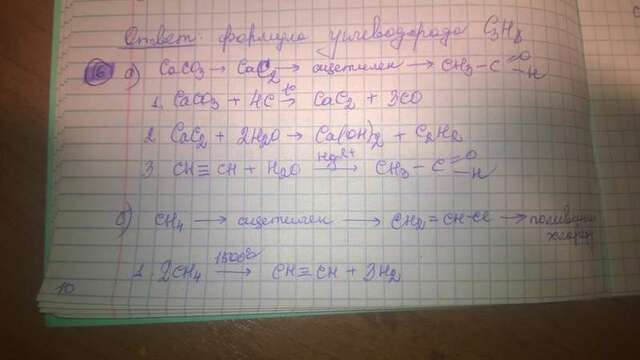 Ответ: формула углеводорода C3H8
16 а) CaCO3 → CaC2 → ацетилен → CH3-C=O-H
1. CaCO3 + 4C t→ CaC2 + 3CO
2 CaC2 + 2H2O → Ca(OH)2 + C2H2
3 CH≡CH + H2O Hg2+→ CH3-C=O-H
б) CH4 → ацетилен → CH2=CH-Cl → поливинил
хлорид
1. 2CH4 1500°→ CH≡CH + 3H2
10